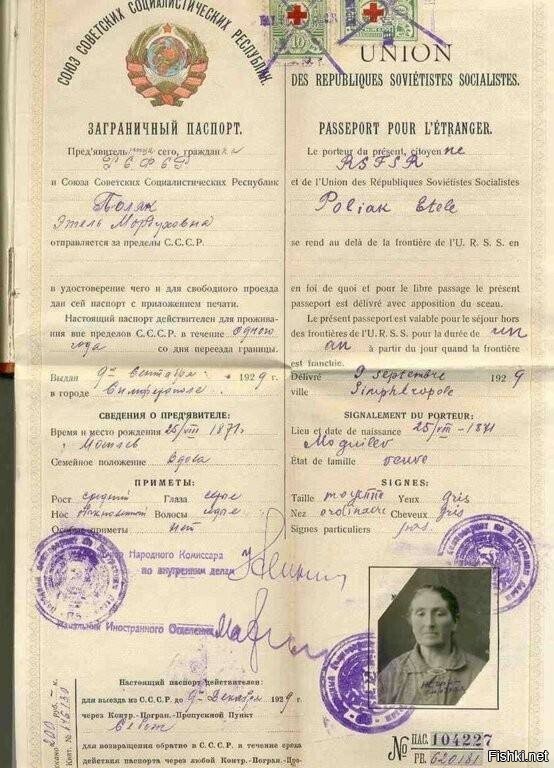 СОЮЗ СОВЕТСКИХ СОЦИАЛИСТИЧЕСКИХ РЕСПУБЛИК.
10
ЗАГРАНИЧНЫЙ ПАСПОРТ.
Пред'явитель сего, граждан ка
РСФСР
и Союза Советских Социалистических Республик
Поляк
Этель Мордуховна
отправляется за пределы С.С.С.Р.
в удостоверение чего и для свободного проезда
дан сей паспорт с приложением печати.
Настоящий паспорт действителен для прожива-
ния вне пределов С.С.С.Р. в течение одного
года со дня переезда границы.
Выдан 9го сентября 1929 г.
в городе Симферополе
СВЕДЕНИЯ О ПРЕД'ЯВИТЕЛЕ:
Время и место рождения 25/VIII 1871г.
г Могилев
Семейное положение Вдова
ПРИМЕТЫ:
Рост средний Глаза серые
Нос Волосы серые
Особые приметы нет
Народного Комиссара
по внутренним делам
Начальник Иностранного Отделения
Настоящий паспорт действителен:
для выезда из С.С.С.Р. до 9го Декабря 1929 г.
через Контр.-Погран.-Пропускной Пункт
для возвращения обратно в С.С.С.Р. в течение срока
действия паспорта через любой Контрол.-Погран.-Про-
UNION
DES REPUBLIQUES SOVIÉTISTES SOCIALISTES.
PASSEPORT POUR L'ÉTRANGER.
Le porteur du présent, citoyen ne
RSFSR
et de l'Union des Républiques Soviétistes Socialistes
Poliak Etele
se rend au delà de la frontière de l'U. R. S. S. en
en foi de quoi et pour le libre passage le présent
passeport est délivré avec apposition du sceau.
Le présent passeport est valable pour le séjour hors
des frontières de l'U. R. S. S. pour la durée de un
an à partir du jour quand la frontière
est franchie.
Délivré 9 septembre 1929
ville Simphéropole
SIGNALEMENT DU PORTEUR:
Lieu et date de naissance 25/VIII - 1871
Moguilev
État de famille veuve
SIGNES:
Taille moyenne Yeux gris
Nez ordinaire Cheveux gris
Signes particuliers pas.
№ ПАС. 104227
РЕВ. 620181
Fishki.net